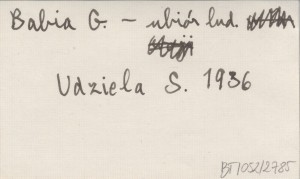 Babia G. – ubiór lud.
Udziela S. 1936
BT/052/2785